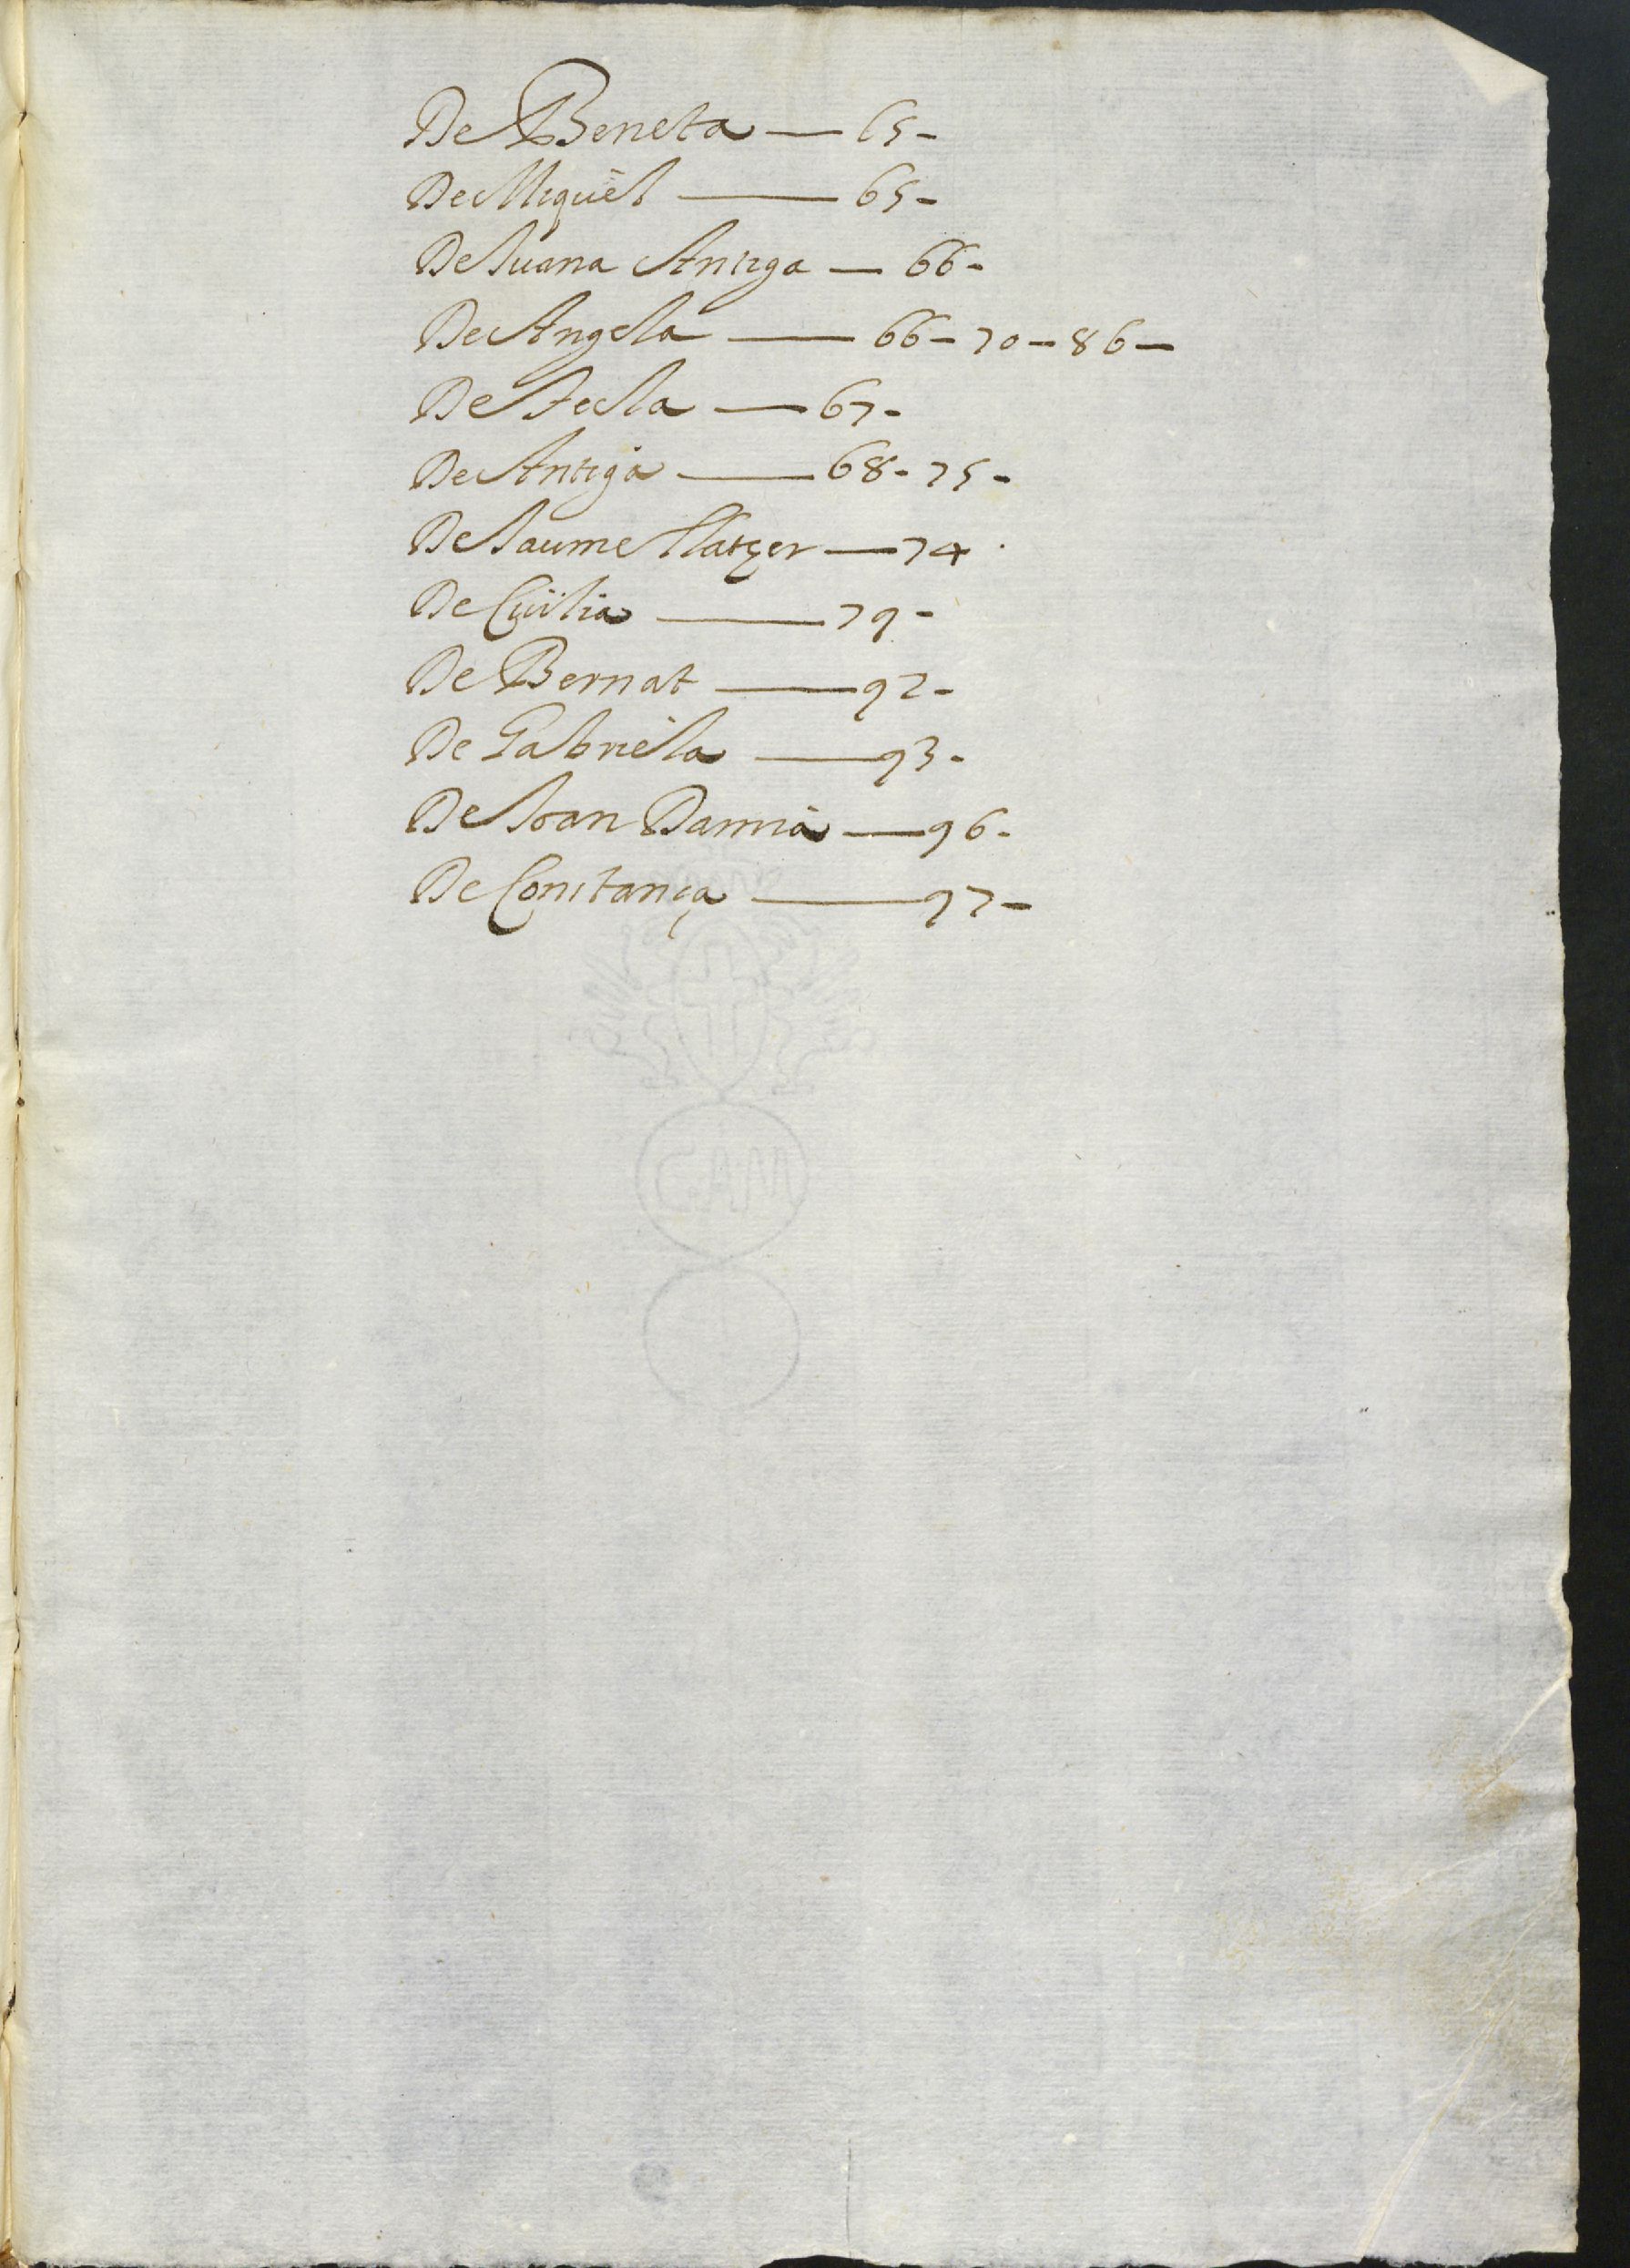 De Beneta — 65 -
De Miquel — 65 -
De Juana Antiga — 66 -
De Angela — 66 - 70 - 86 -
De Tecla — 67 -
De Antiga — 68 - 75 -
De Jaume Llatzer — 74
De Cicilia — 79 -
De Bernat — 92 -
De Gabriela — 93 -
De Joan Damia — 96 -
De Constança — 97 -
GAM